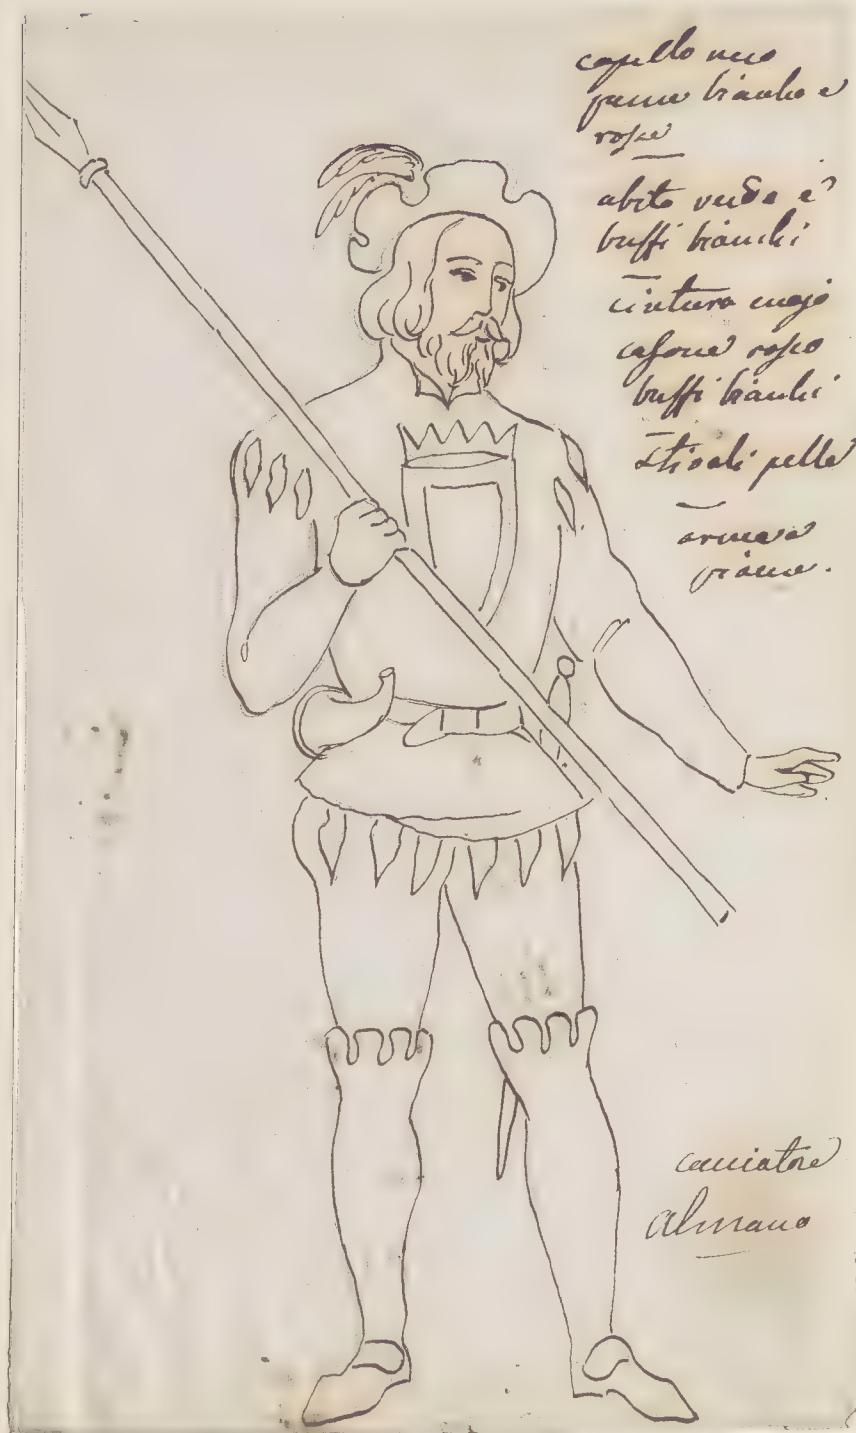 capello nero
piume bianche e
rosse
abito verde e
buffi bianchi
cintura
calzone rosso
buffi bianchi
Stivali pelle
arme a
piacere.
cacciatore
Almano